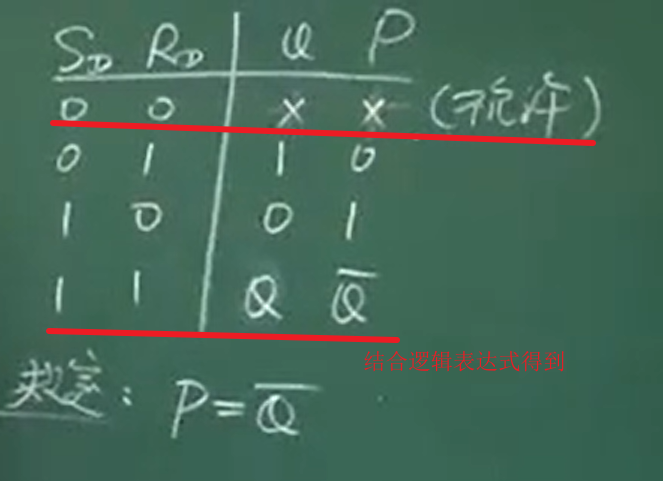 S_D R_D Q P
0 0 × × (不允许)
0 1 1 0
1 0 0 1
1 1 Q Q̅
结合逻辑表达式得到
规定: P=Q̅